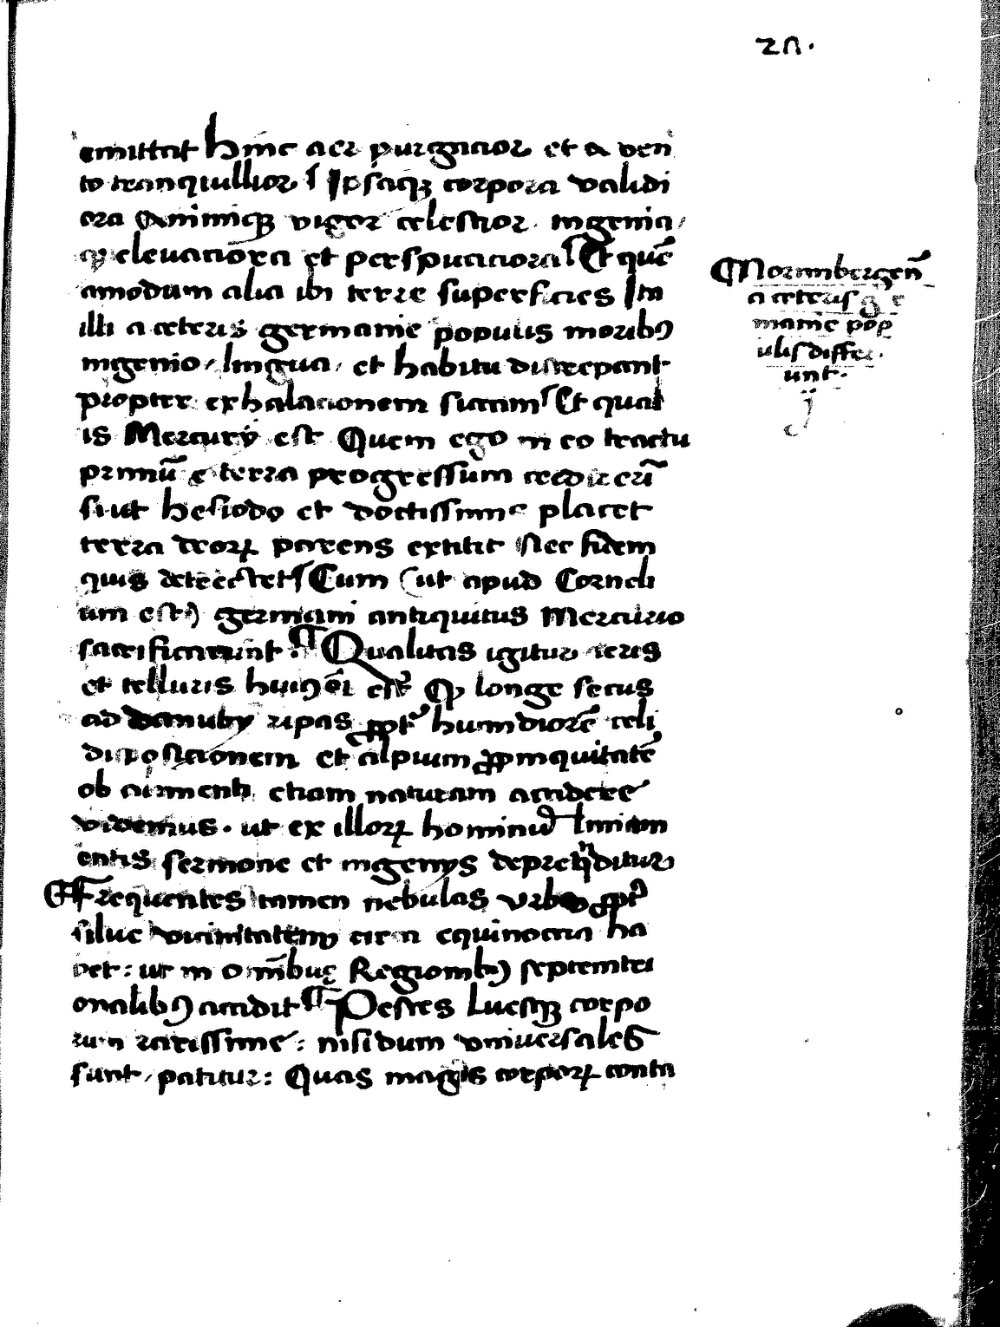 20.
emittat hinc aer purgacior et a ven
to tranquillior Ipsaq; corpora validi
ora Animiq; vigor celestior ingenia
q; elevaciora et perspicaciora Et quē
amodum alia ibi terre superficies Ita
illi a ceteris germanie populis moribꝰ
ingenio, lingua, et habitu discrepant
propter exhalacionem siccam Et qual
is Mercurÿ est Quem ego in eo tractu
primū e terra progressum crediderī
sicut hesiodo et doctissimis placet
terra deoꝝ parens extitit Nec fidem
quis detrectet Cum ut apud Corneli
um est germani antiquitus Mercurio
sacrificarunt Qualitas igitur aeris
et telluris huiꝰ est longe secus
ad danubÿ ripas ꝓpter humidiorē celi
disposicionem et alpium ꝓpinquitatē
ob armenti etiam naturam accidere
videmus. ut ex illoꝝ hominū
entis sermone et ingenÿs deprehēditur
Frequentes tamen nebulas urbs ꝓpter
silue vicinitatem circa equinoctia ha
bet: ut in omībus Regionibꝰ septemtri
onalibꝰ accidit Pestes Luesq; corpo
rum rarissime: nisi dum universales
sunt, patitur: Quas magis corpoꝝ conta
Norimbergen̄
a ceteris ge
manie pop
ulis differ
unt.